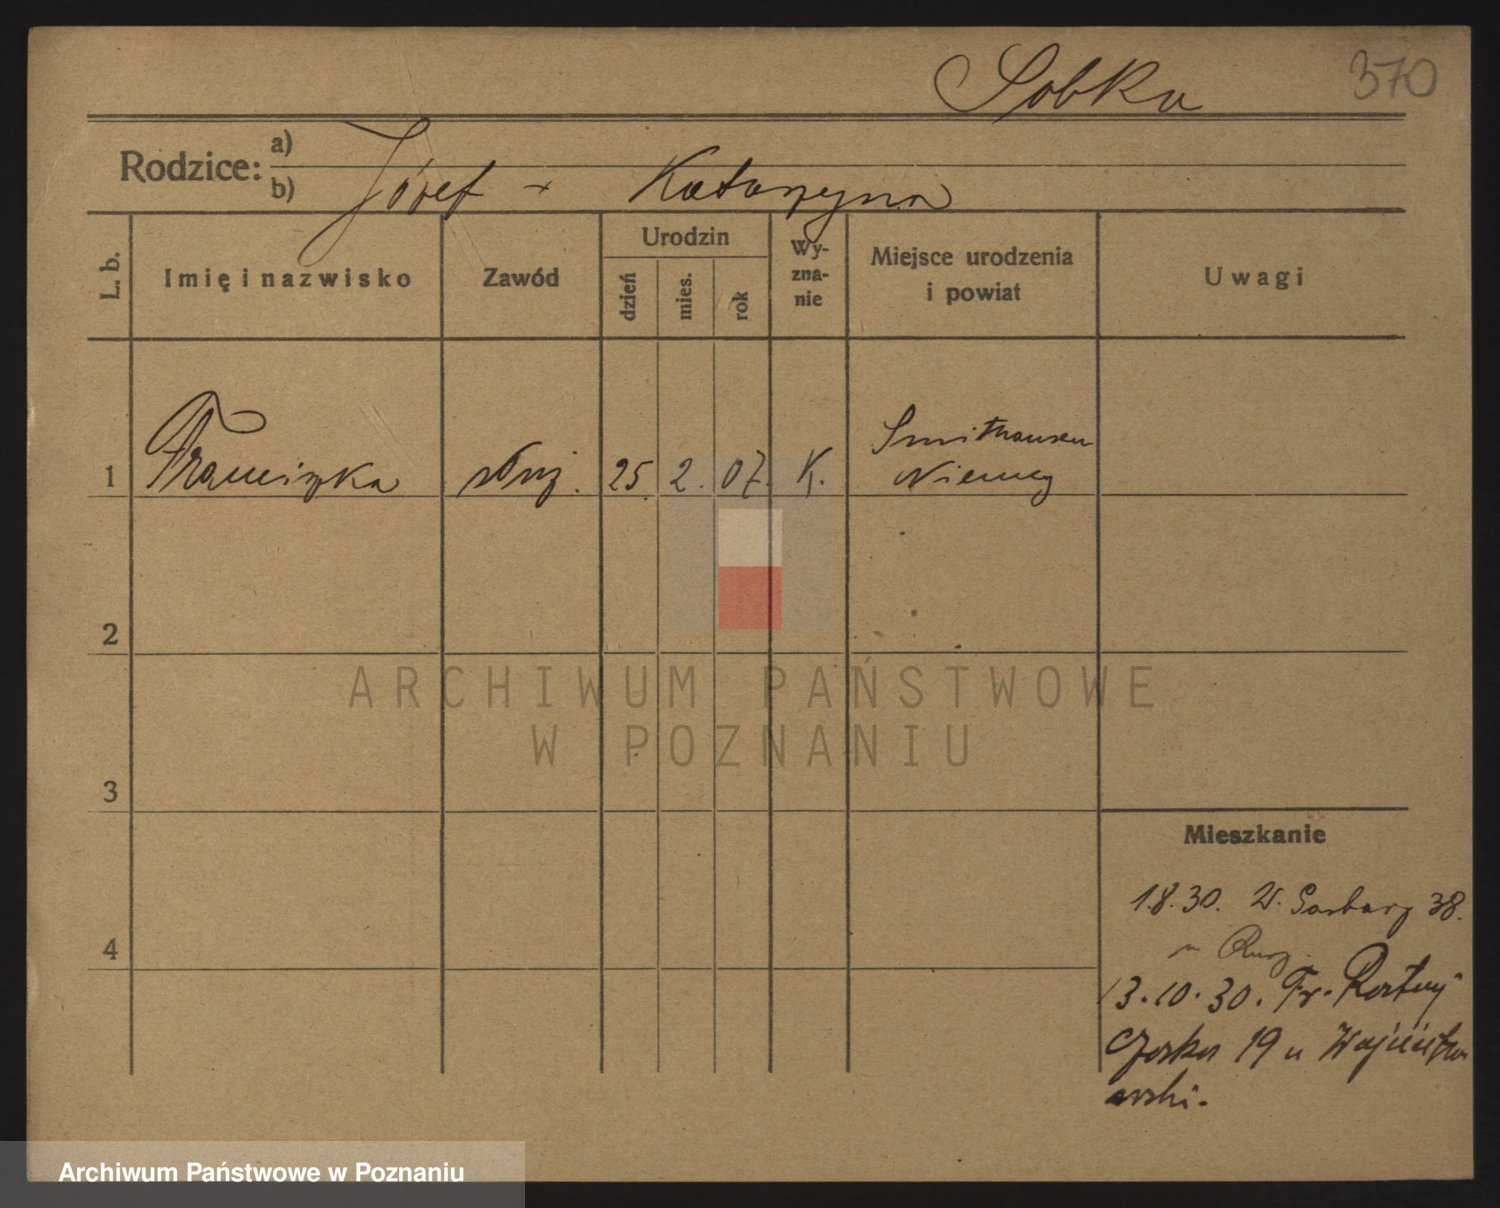 Sobka 370
Rodzice: a)
b) Józef + Katarzyna
L. b.
Imię i nazwisko
Zawód
Urodzin
dzień
mies.
rok
Wy-
zna-
nie
Miejsce urodzenia
i powiat
Uwagi
1 Franciszka służ. 25. 2. 07. K.
Smithausen
Niemcy
2
3
4
Mieszkanie
1.8.30. W. Garbary 38.
u
13.10.30. Fr.
19 u
ARCHIWUM PAŃSTWOWE
W POZNANIU
Archiwum Państwowe w Poznaniu